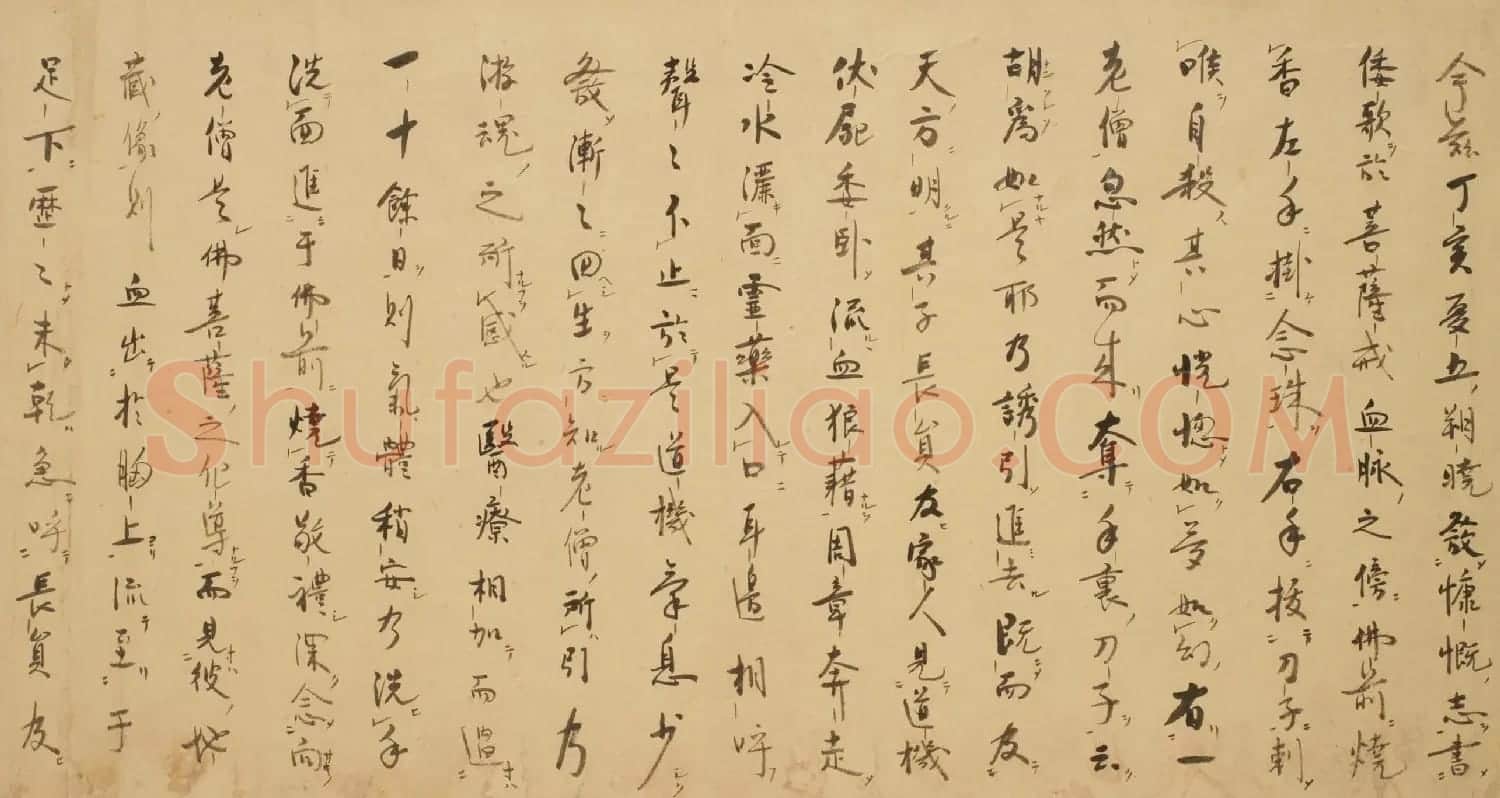 今茲丁亥夏五朔曉發慷慨志書
倭歌於菩薩戒血脉之傍佛前燒
香左手掛念珠右手拔刀子刺
喉自殺其心恍惚如夢如幻有一
老僧忽然而来奪手裏刀子云
胡爲如是耶乃誘引進去既而及
天方明其子長員及家人見道機
伏屍委卧流血狼藉周章奔走
冷水灑面靈藥入口耳邊相呼
聲々不止於是道機氣息少
發漸々回生方知老僧所引乃
游魂之所感也醫療相加而過
一十餘日則氣體稍安乃洗手
洗面進于佛前燒香敬禮深念向
老僧是佛菩薩之化導而見彼地
藏像則血出於胸上流至于
足下歷々未乾急呼長員及
Shufaziliao.COM